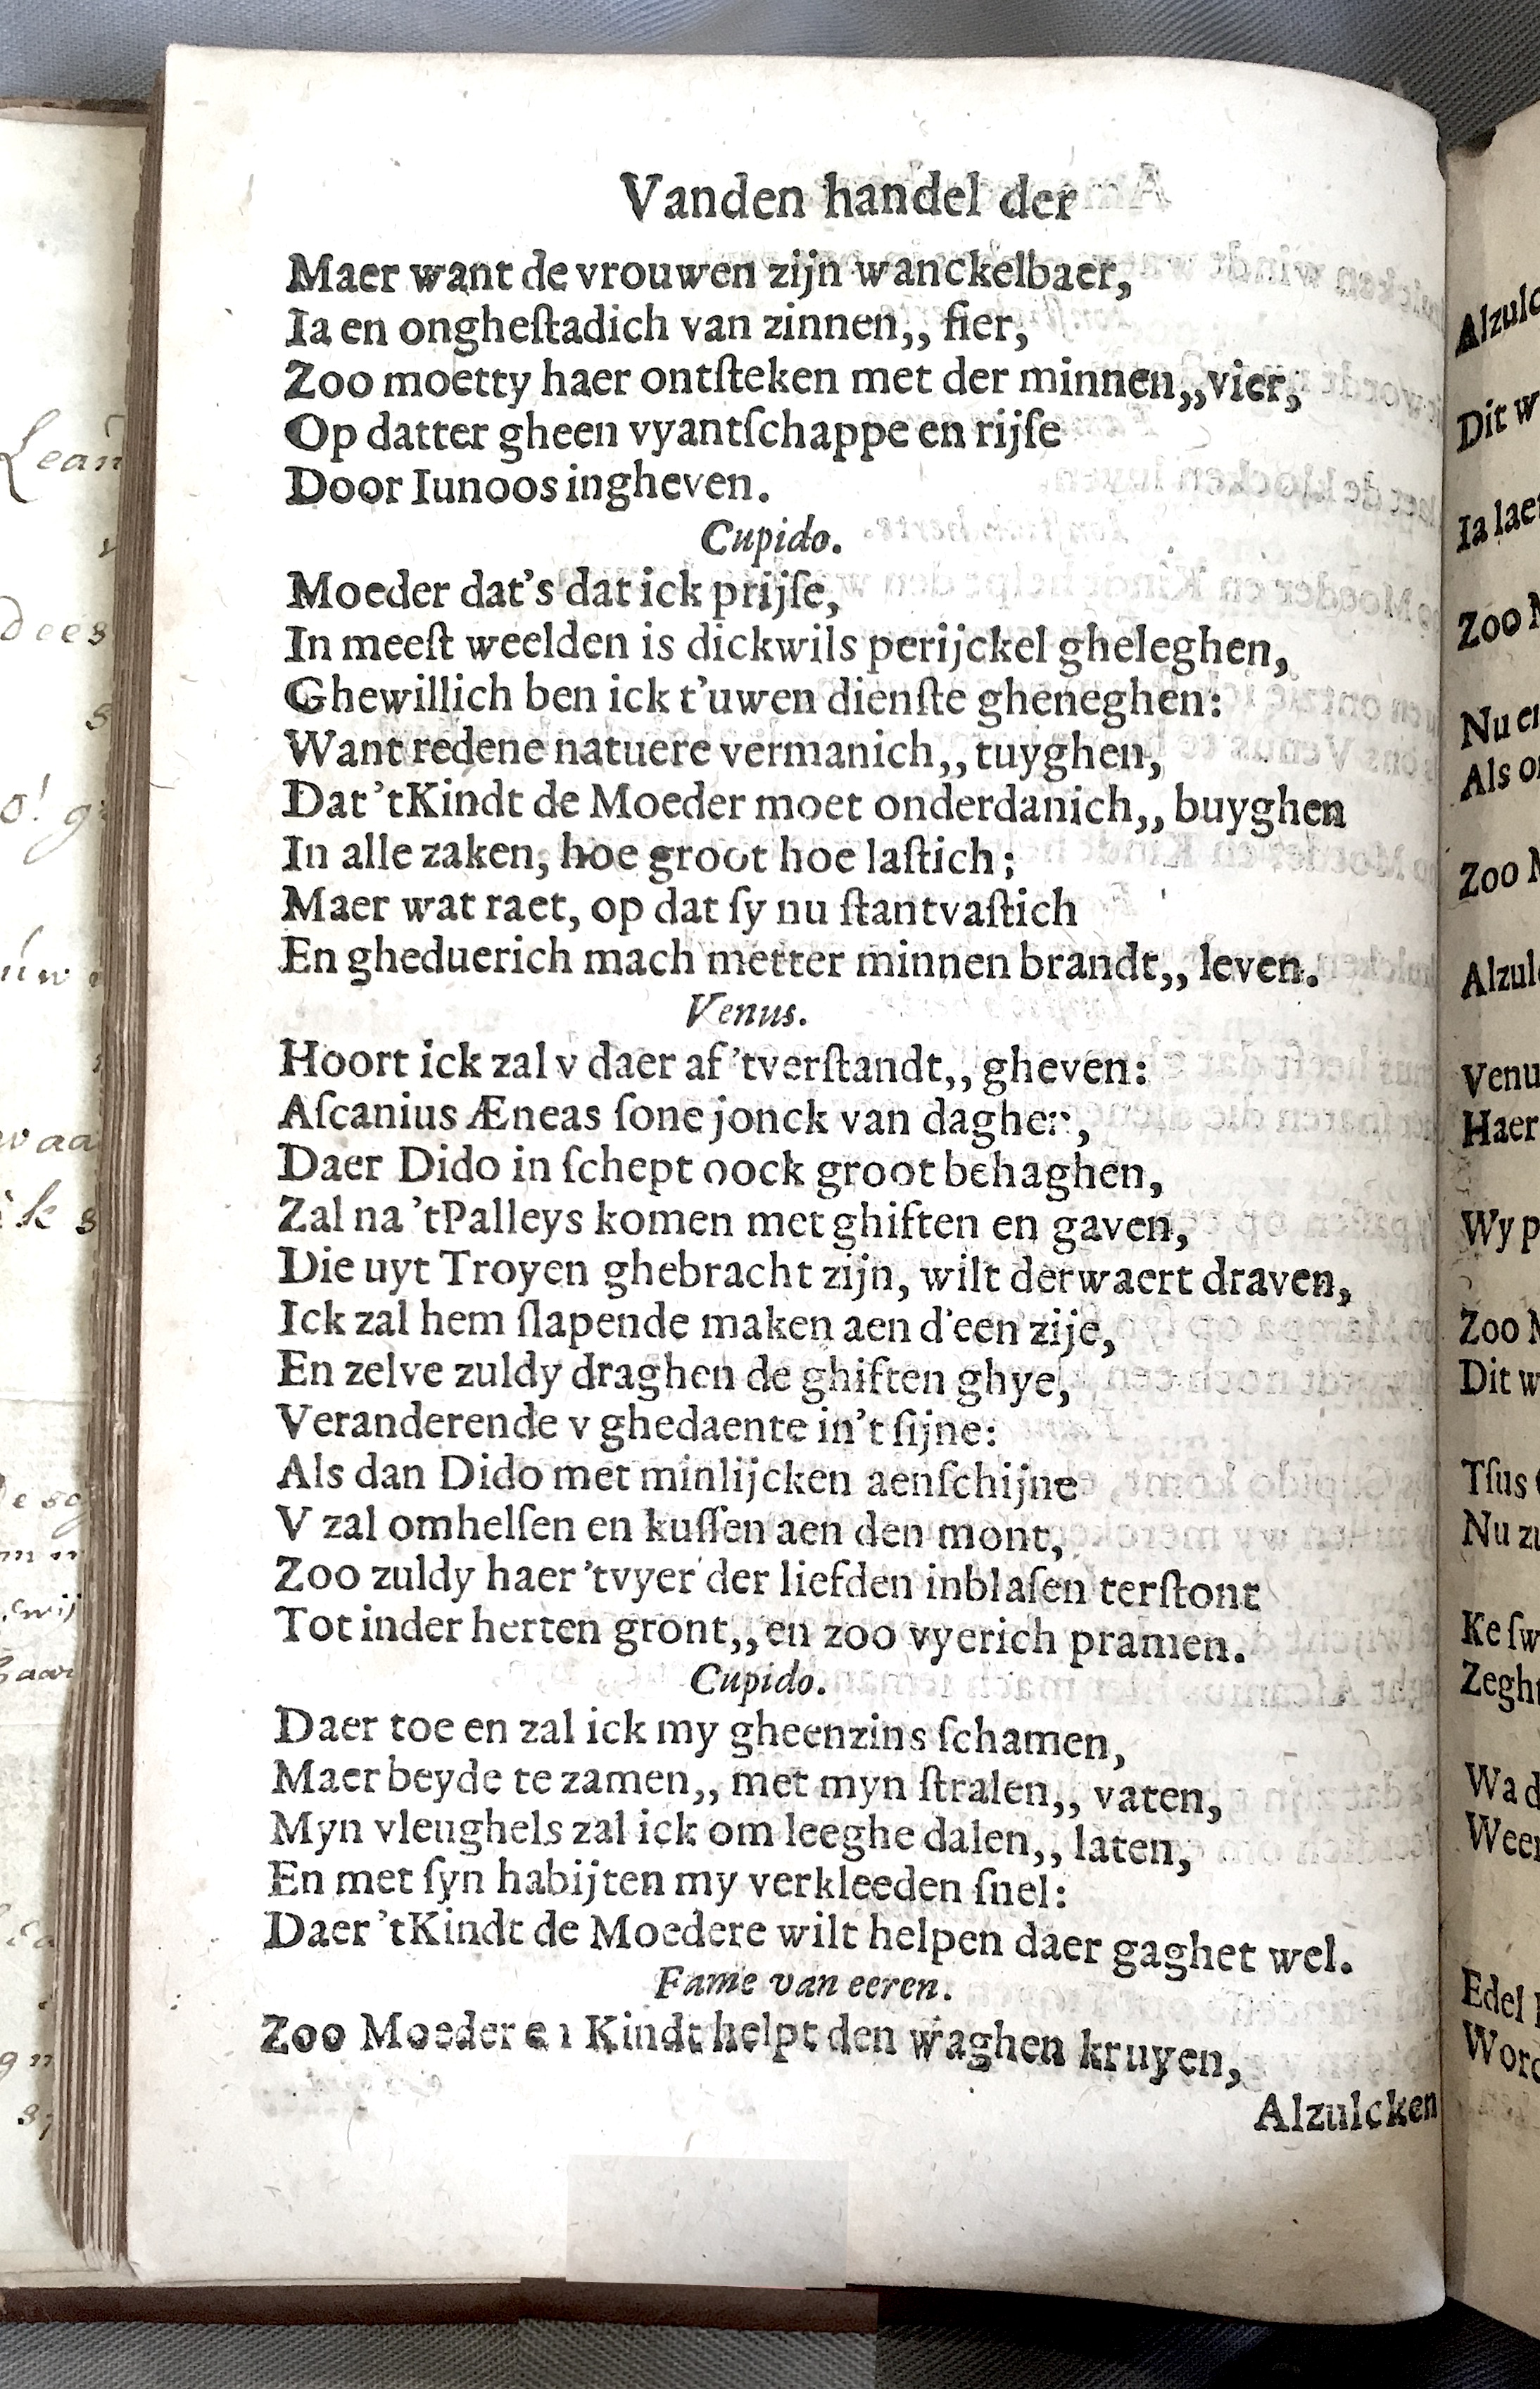 Vanden handel der
Maer want de vrouwen zijn wanckelbaer,
Ia en ongheſtadich van zinnen,, fier,
Zoo moetty haer ontſteken met der minnen,,vier,
Op datter gheen vyantſchappe en rijſe
Door Iunoos ingheven.
Cupido.
Moeder dat's dat ick prijſe,
In meeſt weelden is dickwils perijckel gheleghen,
Ghewillich ben ick t'uwen dienſte gheneghen:
Want redene natuere vermanich,, tuyghen,
Dat 'tKindt de Moeder moet onderdanich,, buyghen
In alle zaken, hoe groot hoe laſtich;
Maer wat raet, op dat ſy nu ſtantvaſtich
En gheduerich mach metter minnen brandt,, leven.
Venus.
Hoort ick zal v daer af 'tverſtandt,, gheven:
Aſcanius Æneas ſone jonck van daghen,
Daer Dido in ſchept oock groot behaghen,
Zal na 'tPalleys komen met ghiften en gaven,
Die uyt Troyen ghebracht zijn, wilt derwaert draven,
Ick zal hem ſlapende maken aen d'een zije,
En zelve zuldy draghen de ghiften ghye,
Veranderende v ghedaente in't ſijne:
Als dan Dido met minlijcken aenſchijne
V zal omhelſen en kuſſen aen den mont,
Zoo zuldy haer 'tvyer der liefden inblaſen terſtont
Tot inder herten gront,, en zoo vyerich pramen.
Cupido.
Daer toe en zal ick my gheenzins ſchamen,
Maer beyde te zamen,, met myn ſtralen,, vaten,
Myn vleughels zal ick om leeghe dalen,, laten,
En met ſyn habijten my verkleeden ſnel:
Daer 'tKindt de Moedere wilt helpen daer gaghet wel.
Fame van eeren.
Zoo Moeder en Kindt helpt den waghen kruyen,
Alzulcken
Dit w
Ia laet
Zoo M
Nu en
Als o
Zoo M
Alzul
Venu
Haer
Wy p
Zoo M
Dit w
Tſus
Nu zu
Ke ſw
Zegh
Wa d
Weer
Edel
Word